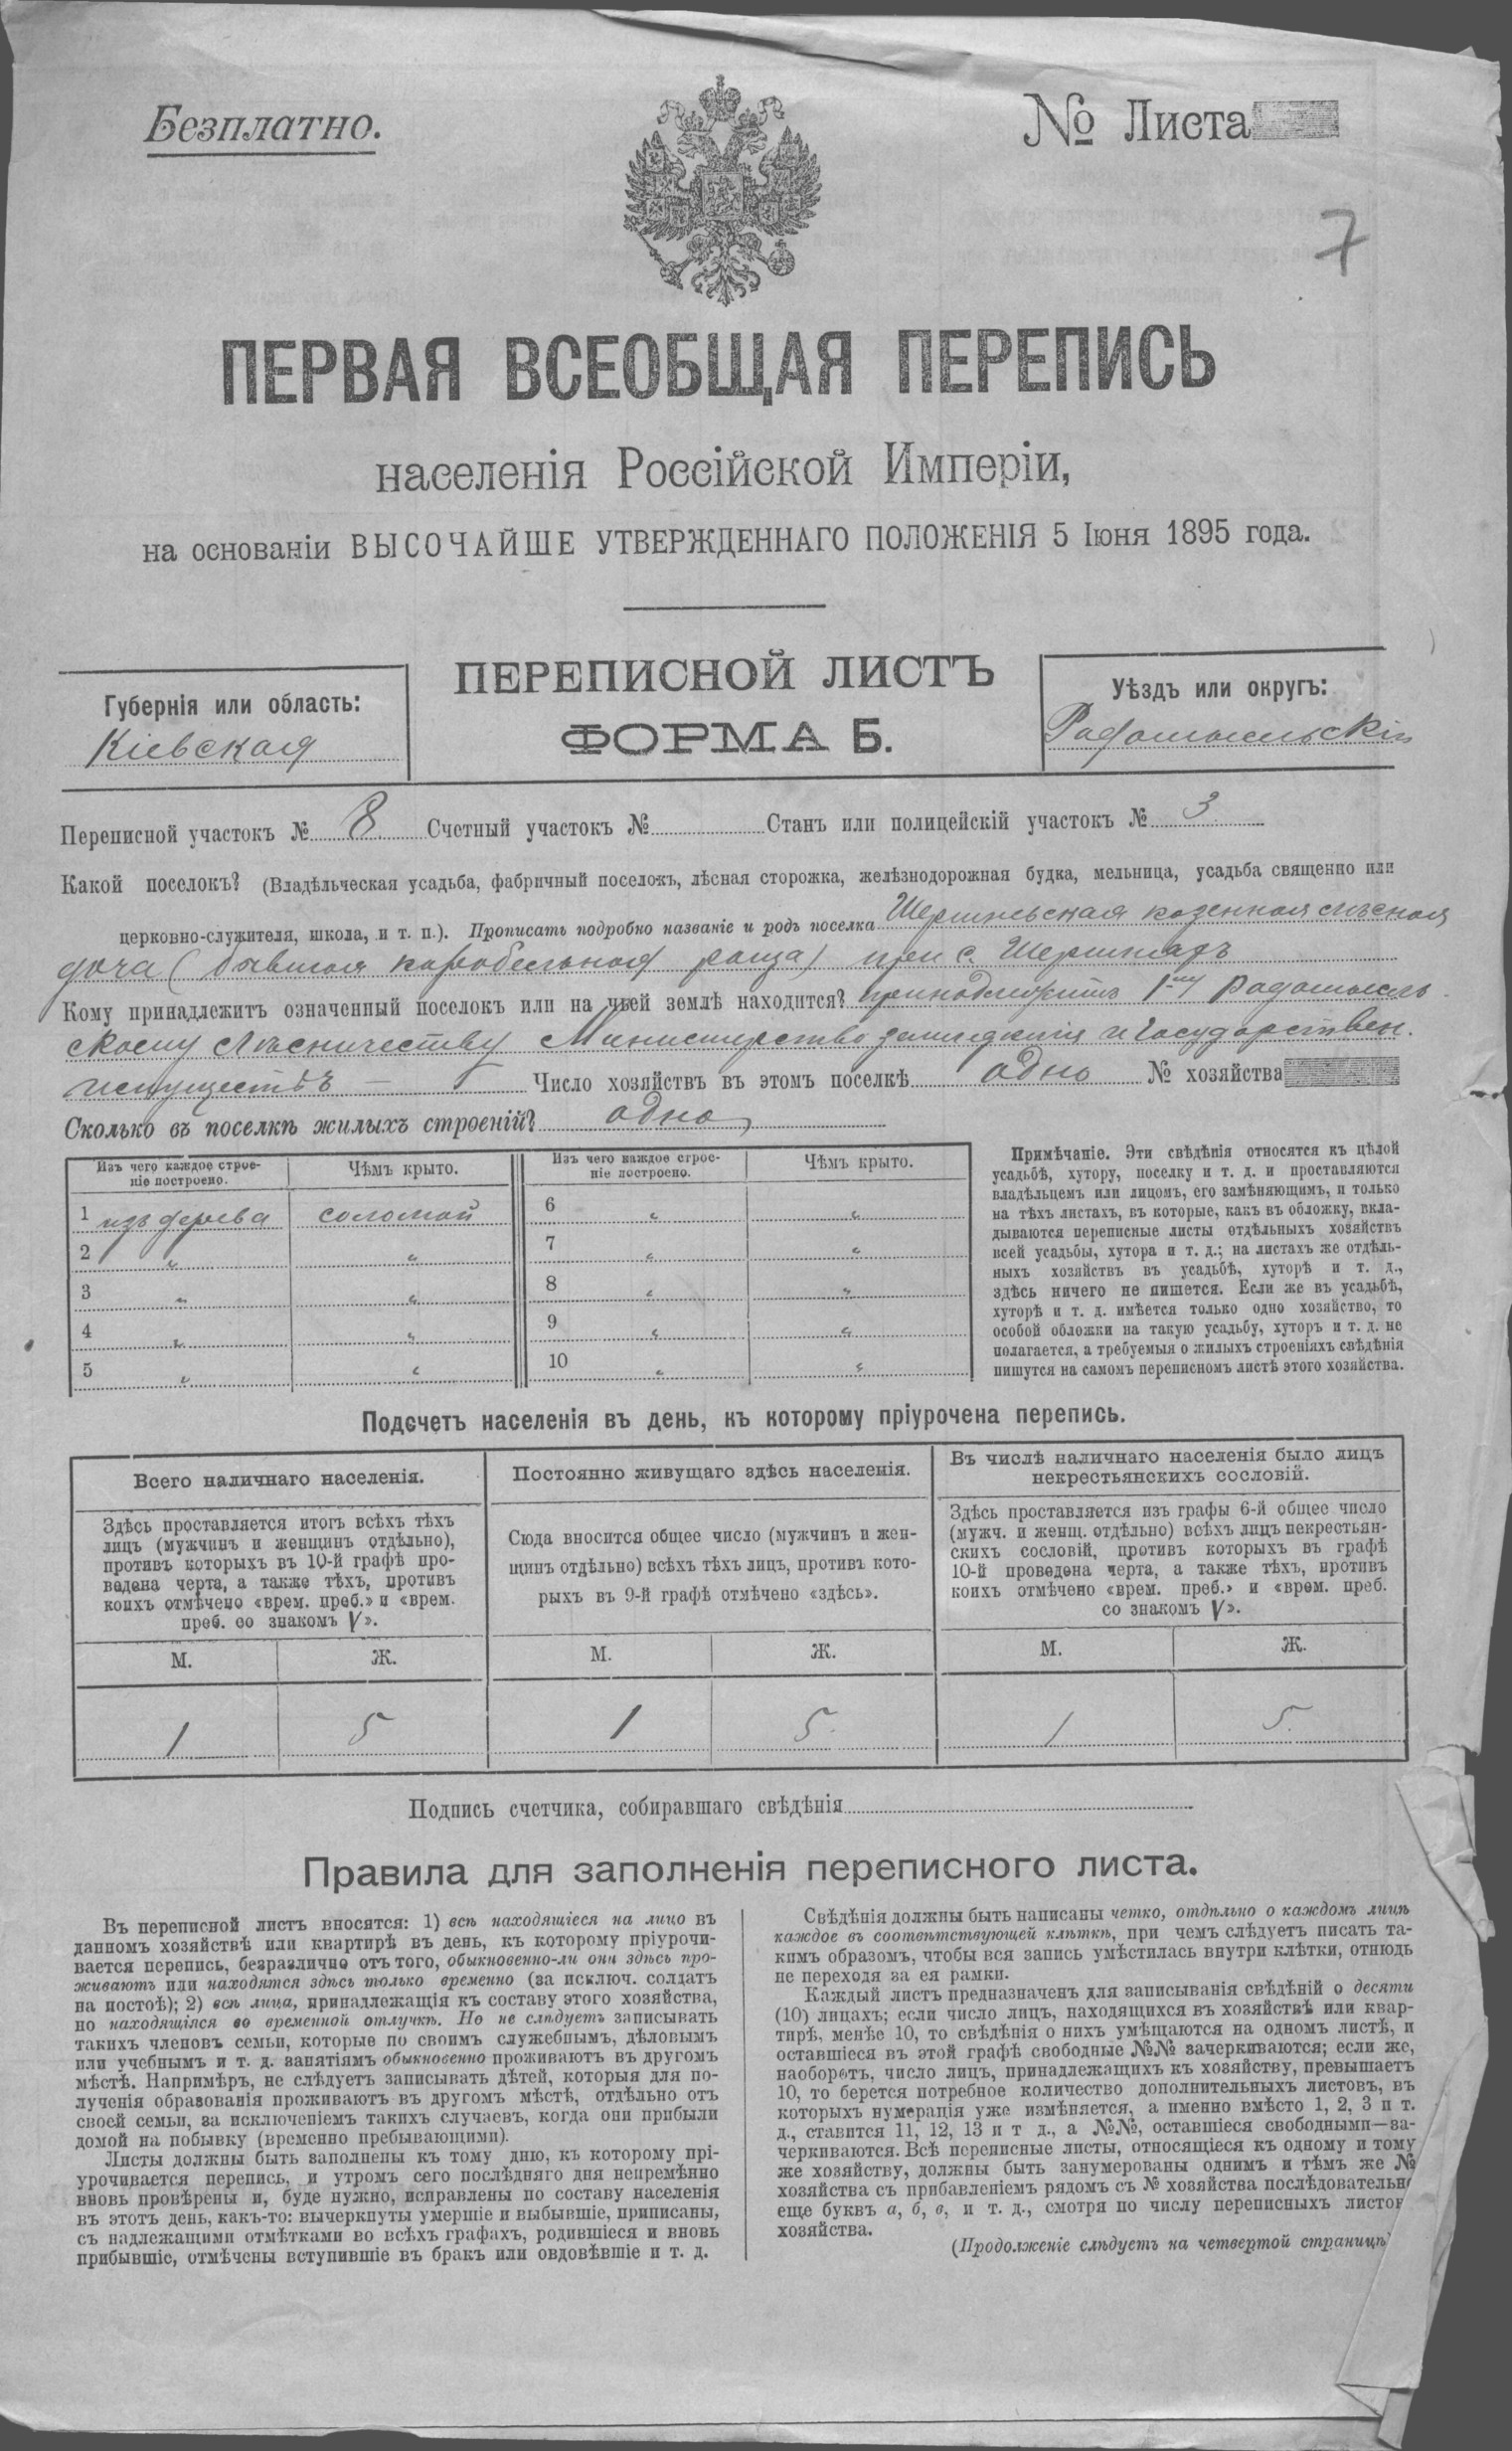 Безплатно.
№ Листа
7
ПЕРВАЯ ВСЕОБЩАЯ ПЕРЕПИСЬ
населенія Россійской Имперіи,
на основаніи ВЫСОЧАЙШЕ УТВЕРЖДЕННАГО ПОЛОЖЕНІЯ 5 Іюня 1895 года.
ПЕРЕПИСНОЙ ЛИСТЪ
ФОРМА Б.
Губернія или область:
Кіевская
Уѣздъ или округъ:
Радомысльскій
Переписной участокъ № 8 Счетный участокъ № Станъ или полицейскій участокъ № 3
Какой поселокъ? (Владѣльческая усадьба, фабричный поселокъ, лѣсная сторожка, желѣзнодорожная будка, мельница, усадьба священно или
церковно-служителя, школа, и т. п.). Прописать подробно названіе и родъ поселка Шершневская казенная лѣсная
дача (бывшая корабельная роща) при с. Шершняхъ
Кому принадлежитъ означенный поселокъ или на чьей землѣ находится? принадлежитъ 1му Радомысль
скому Лѣсничеству Министерство земледелія и Государствен.
имуществъ — Число хозяйствъ въ этомъ поселкѣ одно № хозяйства
Сколько въ поселкѣ жилыхъ строеній? одно
Изъ чего каждое строеніе построено. Чѣмъ крыто. Изъ чего каждое строеніе построено. Чѣмъ крыто.
1 изъ дерева соломой 6 " "
2 " " 7 " "
3 " " 8 " "
4 " " 9 " "
5 " " 10 " "
Примѣчаніе. Эти свѣдѣнія относятся къ цѣлой
усадьбѣ, хутору, поселку и т. д. и проставляются
владѣльцемъ или лицомъ, его замѣняющимъ, и только
на тѣхъ листахъ, въ которые, какъ въ обложку, вкла-
дываются переписные листы отдѣльныхъ хозяйствъ
всей усадьбы, хутора и т. д.; на листахъ же отдѣль-
ныхъ хозяйствъ въ усадьбѣ, хуторѣ и т. д.,
здѣсь ничего не пишется. Если же въ усадьбѣ,
хуторѣ и т. д. имѣется только одно хозяйство, то
особой обложки на такую усадьбу, хуторъ и т. д. не
полагается, а требуемыя о жилыхъ строеніяхъ свѣдѣнія
пишутся на самомъ переписномъ листѣ этого хозяйства.
Подсчетъ населенія въ день, къ которому пріурочена перепись.
Всего наличнаго населенія.
Здѣсь проставляется итогъ всѣхъ тѣхъ
лицъ (мужчинъ и женщинъ отдѣльно),
противъ которыхъ въ 10-й графѣ про-
ведена черта, а также тѣхъ, противъ
коихъ отмѣчено «врем. преб.» и «врем.
преб. со знакомъ V».
М. Ж.
1 5
Постоянно живущаго здѣсь населенія.
Сюда вносится общее число (мужчинъ и жен-
щинъ отдѣльно) всѣхъ тѣхъ лицъ, противъ кото-
рыхъ въ 9-й графѣ отмѣчено «здѣсь».
М. Ж.
1 5.
Въ числѣ наличнаго населенія было лицъ
некрестьянскихъ сословій.
Здѣсь проставляется изъ графы 6-й общее число
(мужч. и женщ. отдѣльно) всѣхъ лицъ некрестьян-
скихъ сословій, противъ которыхъ въ графѣ
10-й проведена черта, а также тѣхъ, противъ
коихъ отмѣчено «врем. преб.» и «врем. преб.
со знакомъ V».
М. Ж.
1 5.
Подпись счетчика, собиравшаго свѣдѣнія
Правила для заполненія переписного листа.
Въ переписной листъ вносятся: 1) всѣ находящіеся на лицо въ
данномъ хозяйствѣ или квартирѣ въ день, къ которому пріурочи-
вается перепись, безразлично отъ того, обыкновенно-ли они здѣсь про-
живаютъ или находятся здѣсь только временно (за исключ. солдатъ
на постоѣ); 2) всѣ лица, принадлежащія къ составу этого хозяйства,
но находящіяся во временной отлучкѣ. Но не слѣдуетъ записывать
такихъ членовъ семьи, которые по своимъ служебнымъ, дѣловымъ
или учебнымъ и т. д. занятіямъ обыкновенно проживаютъ въ другомъ
мѣстѣ. Напримѣръ, не слѣдуетъ записывать дѣтей, которыя для по-
лученія образованія проживаютъ въ другомъ мѣстѣ, отдѣльно отъ
своей семьи, за исключеніемъ такихъ случаевъ, когда они прибыли
домой на побывку (временно пребывающими).
Листы должны быть заполнены къ тому дню, къ которому прі-
урочивается перепись, и утромъ сего послѣдняго дня непремѣнно
вновь провѣрены и, буде нужно, исправлены по составу населенія
въ этотъ день, какъ-то: вычеркнуты умершіе и выбывшіе, приписаны,
съ надлежащими отмѣтками во всѣхъ графахъ, родившіеся и вновь
прибывшіе, отмѣчены вступившіе въ бракъ или овдовѣвшіе и т. д.
Свѣдѣнія должны быть написаны четко, отдѣльно о каждомъ лицѣ
каждое въ соотвѣтствующей клѣткѣ, при чемъ слѣдуетъ писать та-
кимъ образомъ, чтобы вся запись умѣстилась внутри клѣтки, отнюдь
не переходя за ея рамки.
Каждый листъ предназначенъ для записыванія свѣдѣній о десяти
(10) лицахъ; если число лицъ, находящихся въ хозяйствѣ или квар-
тирѣ, менѣе 10, то свѣдѣнія о нихъ умѣщаются на одномъ листѣ, и
оставшіеся въ этой графѣ свободные №№ зачеркиваются; если же,
наоборотъ, число лицъ, принадлежащихъ къ хозяйству, превышаетъ
10, то берется потребное количество дополнительныхъ листовъ, въ
которыхъ нумерація уже измѣняется, а именно вмѣсто 1, 2, 3 и т.
д., ставится 11, 12, 13 и т д., а №№, оставшіеся свободными—за-
черкиваются. Всѣ переписные листы, относящіеся къ одному и тому
же хозяйству, должны быть занумерованы однимъ и тѣмъ же №
хозяйства съ прибавленіемъ рядомъ съ № хозяйства послѣдовательно
еще буквъ а, б, в, и т. д., смотря по числу переписныхъ листов
хозяйства.
(Продолженіе слѣдуетъ на четвертой страницѣ